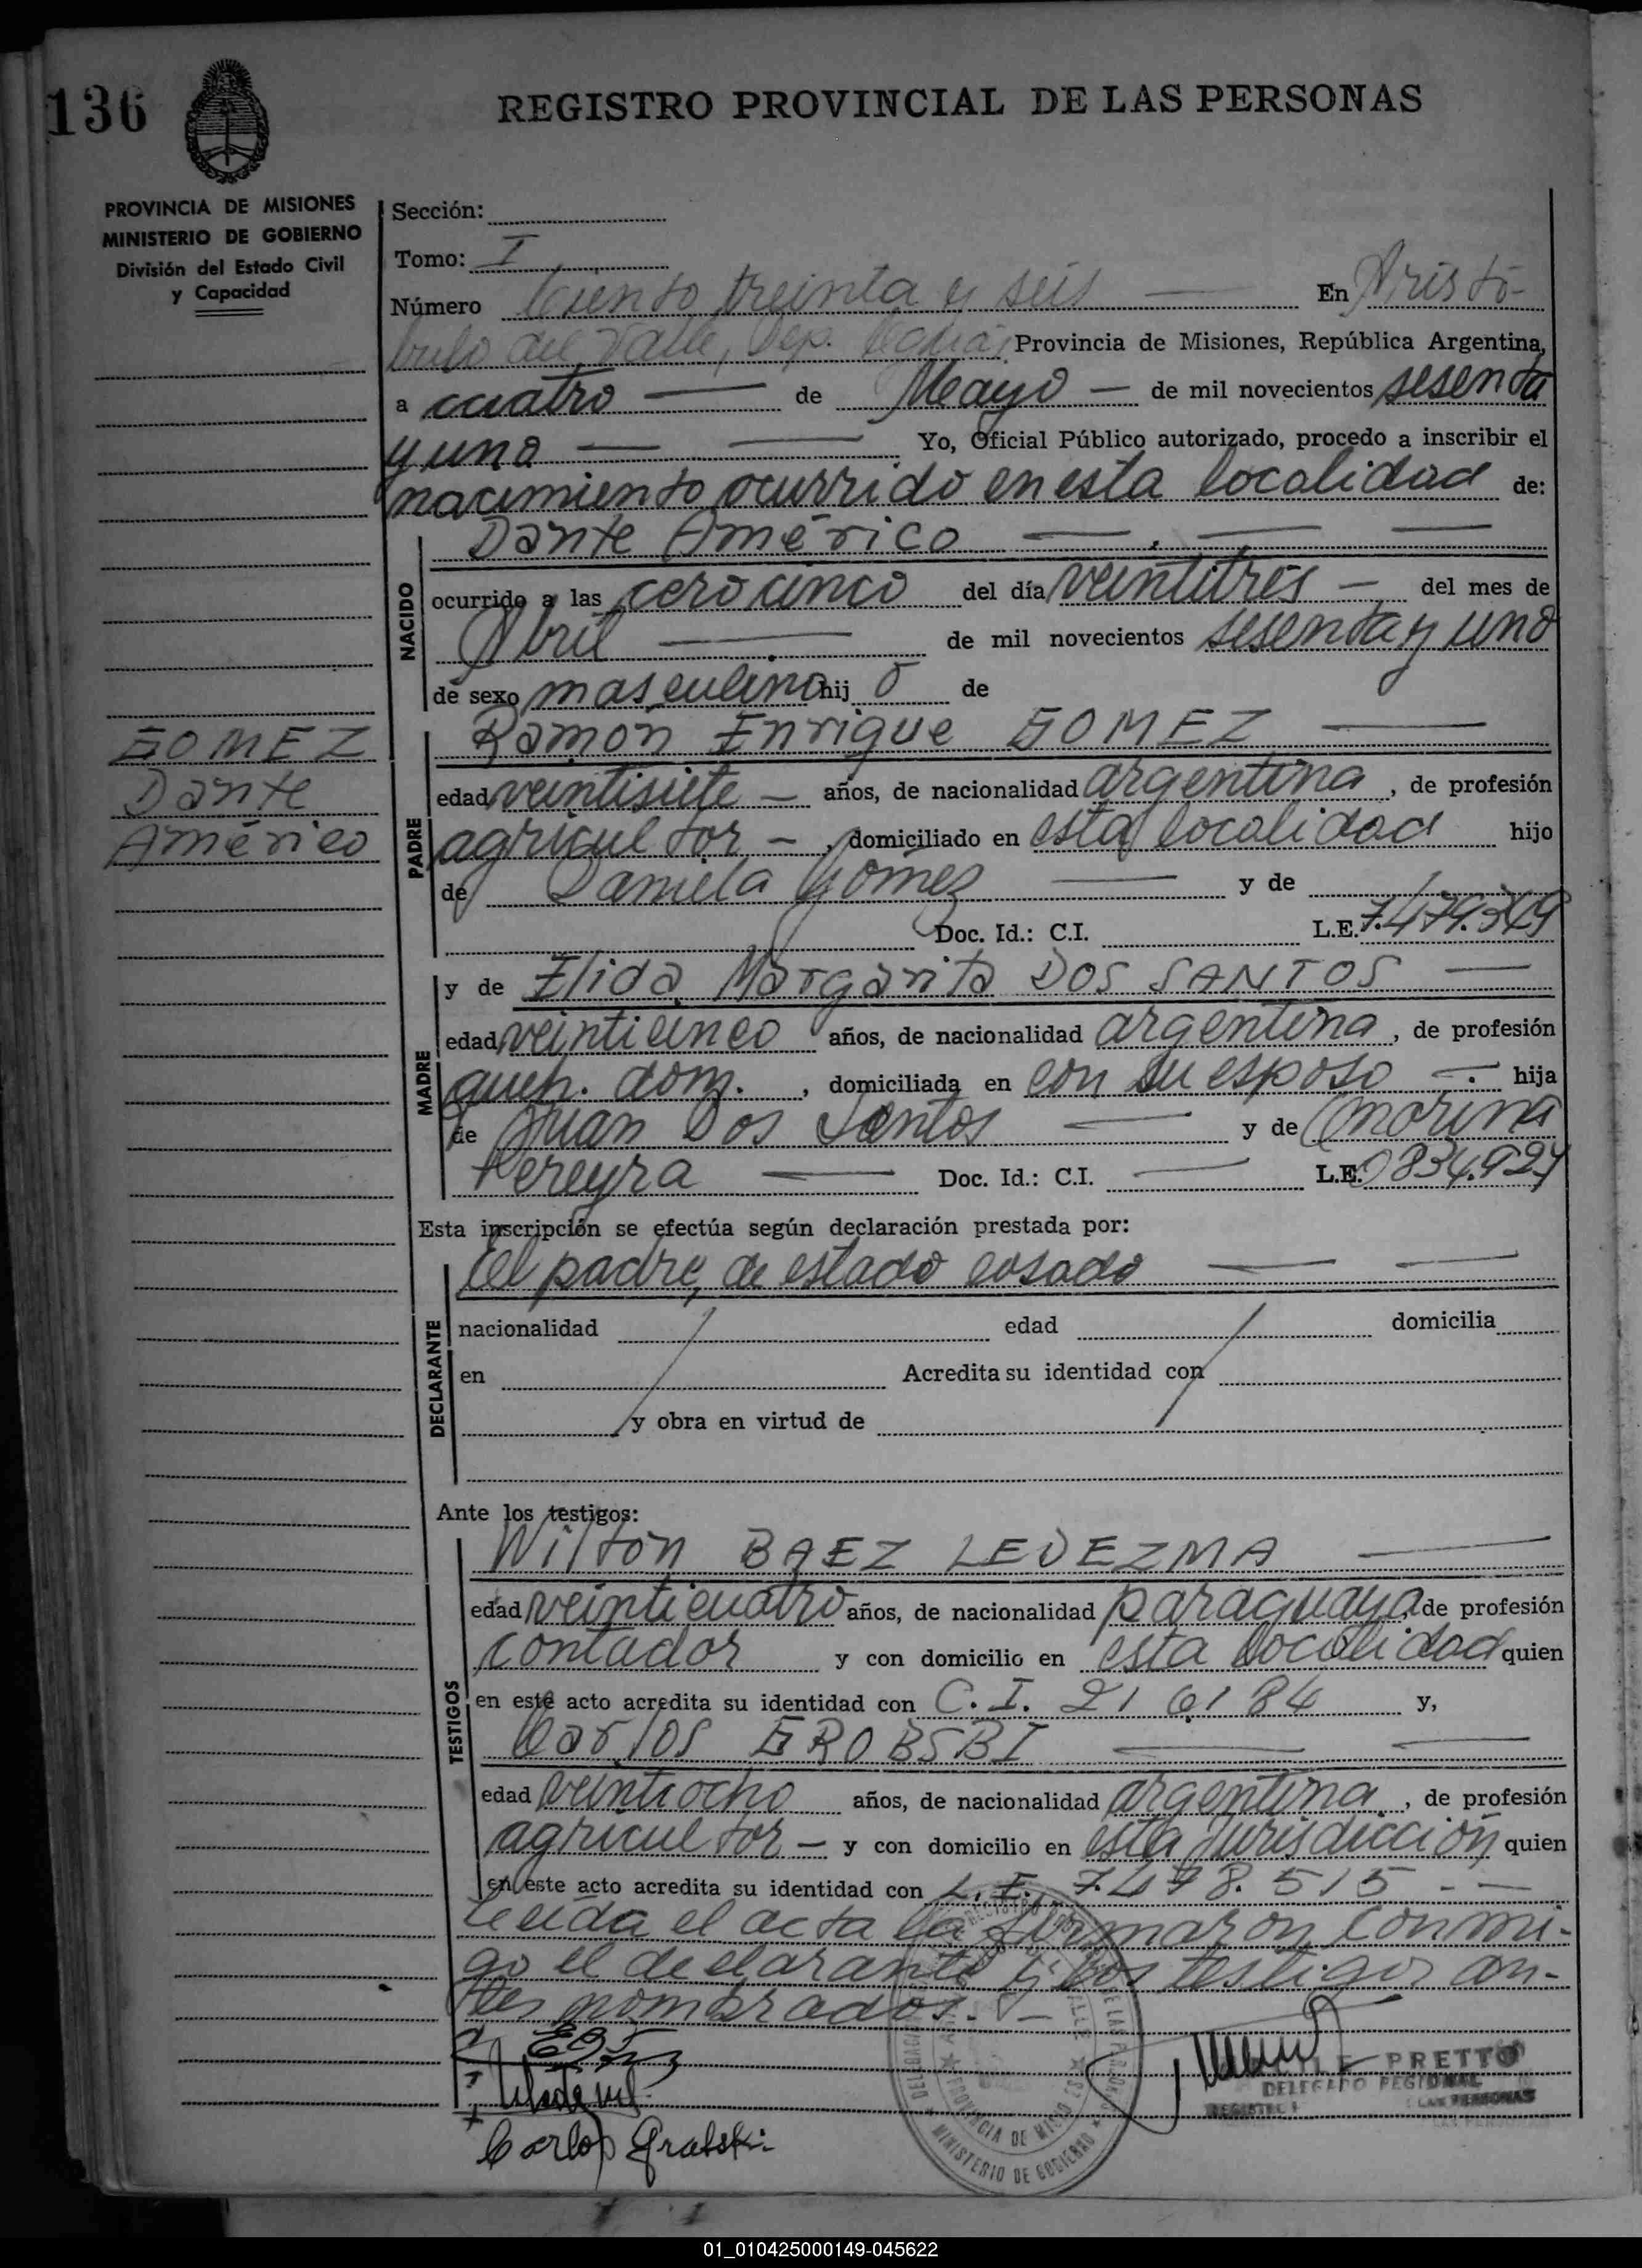 136
REGISTRO PROVINCIAL DE LAS PERSONAS
PROVINCIA DE MISIONES
MINISTERIO DE GOBIERNO
División del Estado Civil
y Capacidad
Sección:
Tomo: I
Número Ciento treinta y seis — En Aristó-
bulo del Valle, Dep. Provincia de Misiones, República Argentina,
a cuatro — de Mayo — de mil novecientos sesenta
y uno — — Yo, Oficial Público autorizado, procedo a inscribir el
nacimiento ocurrido en esta localidad de:
NACIDO
Dante Américo — — —
ocurrido a las cero cinco del día veintitrés — del mes de
Abril — de mil novecientos sesenta y uno
de sexo masculino hij o de
GOMEZ
Dante
Américo
PADRE
Ramón Enrique GOMEZ —
edad veintisiete — años, de nacionalidad argentina, de profesión
agricultor —, domiciliado en esta localidad hijo
de Daniela Gómez — y de
Doc. Id.: C.I. L.E. 7.479.
MADRE
y de Elida Margarita DOS SANTOS —
edad veinticinco años, de nacionalidad argentina, de profesión
queh. dom., domiciliada en con su esposo —. hija
de Juan Dos Santos — y de Morina
Pereyra — Doc. Id.: C.I. — L.E. 0834.927
Esta inscripción se efectúa según declaración prestada por:
DECLARANTE
El padre, de estado casado — —
nacionalidad edad domicilia
en Acredita su identidad con
y obra en virtud de
Ante los testigos:
TESTIGOS
Wilton BAEZ LEDEZMA —
edad veinticuatro años, de nacionalidad paraguaya, de profesión
contador y con domicilio en esta localidad quien
en este acto acredita su identidad con C.I. 216184 y,
Carlos GROBSBI — —
edad veintiocho años, de nacionalidad argentina, de profesión
agricultor — y con domicilio en esta jurisdicción quien
en este acto acredita su identidad con L.E. 7.478.515 - —
Leida el acta la firmaron conmi-
go el declarante y los testigos an-
tes nombrados. —
PRETTO
DELEGADO REGIONAL
LAS PERSONAS
PROVINCIA DE MISIONES
MINISTERIO DE GOBIERNO
Carlos Grabski
01_010425000149-045622